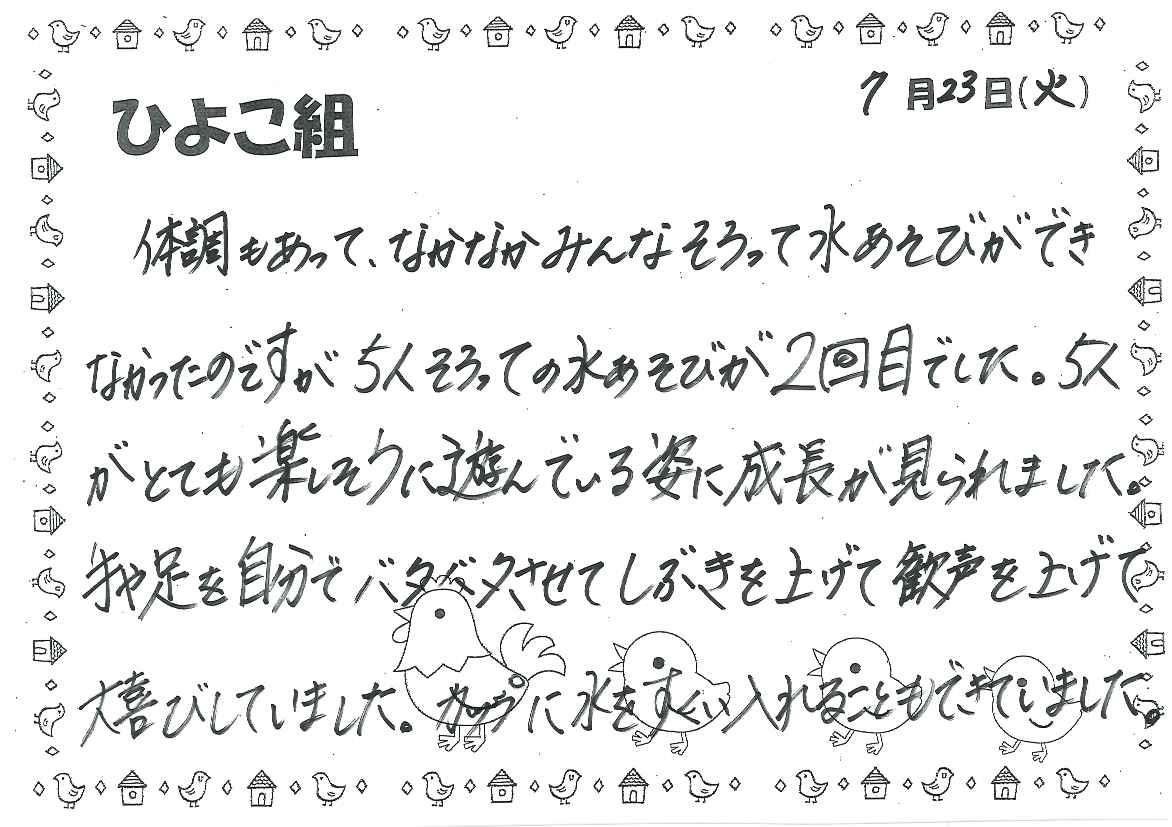 7月23日(火)
ひよこ組
体調もあって、なかなかみんなそろって水あそびができ
なかったのですが5人そろっての水あそびが2回目でした。5人
がとても楽しそうに遊んでいる姿に成長が見られました。
手や足を自分でバタバタさせてしぶきを上げて歓声を上げて
大喜びしていました。カップに水をすくい入れることもできていました。